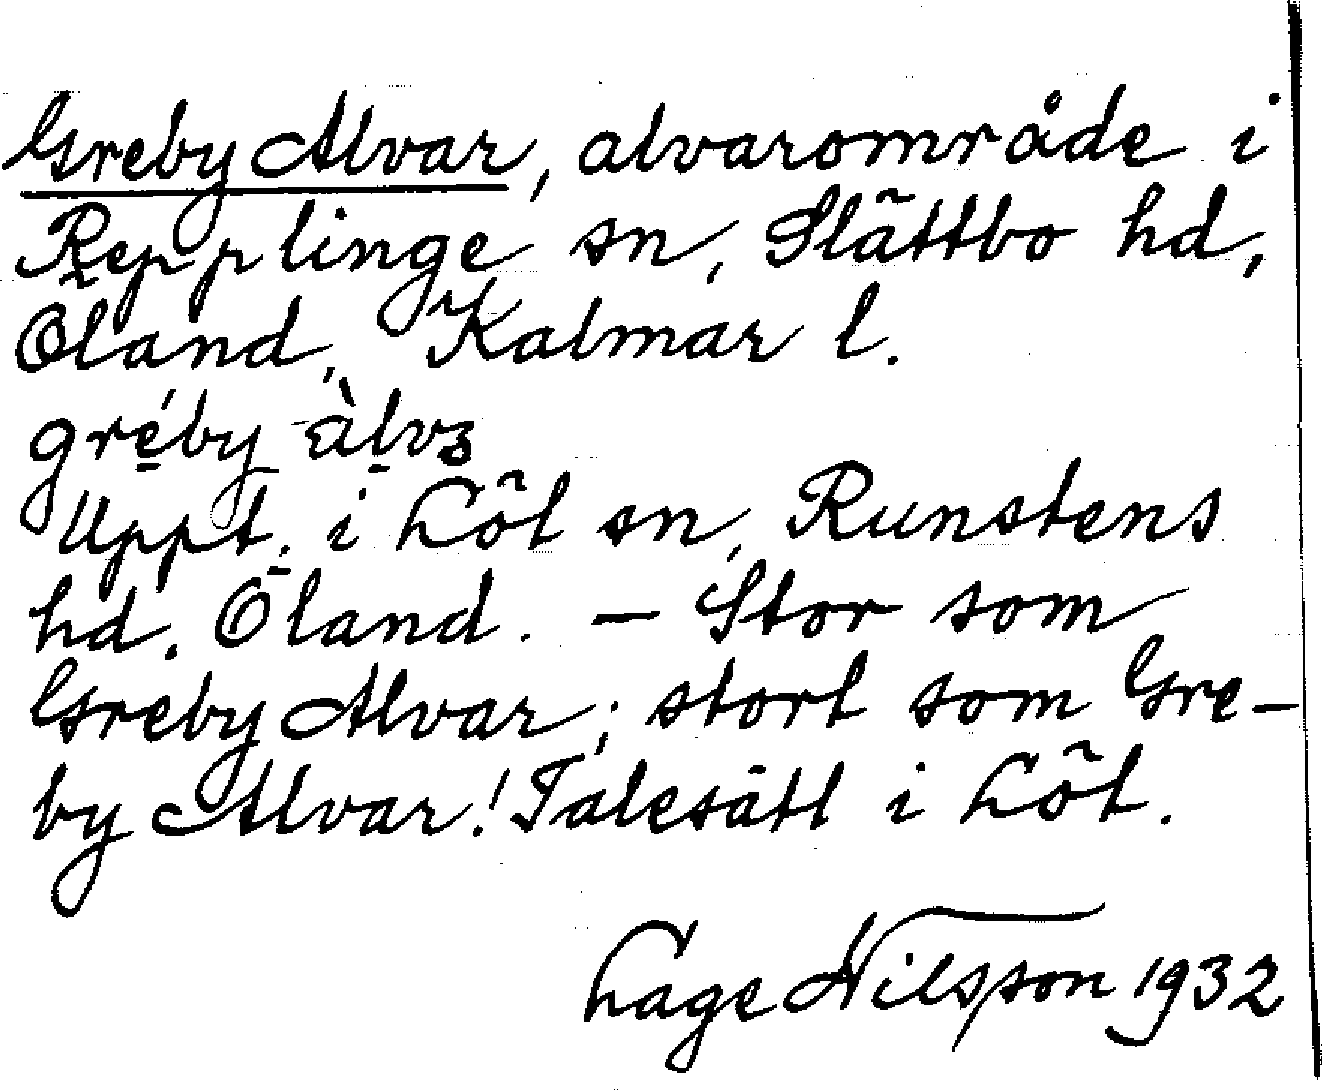 Greby Alvar, alvarområde i
Repplinge sn, Slättbo hd,
Öland, Kalmar l.
gré̱by àḷvɜ
Uppt. i Löt sn, Runstens
hd. Öland. – Stor som
Greby Alvar; stort som Gre-
by Alvar! Talesätt i Löt.
Lage Nilsson 1932